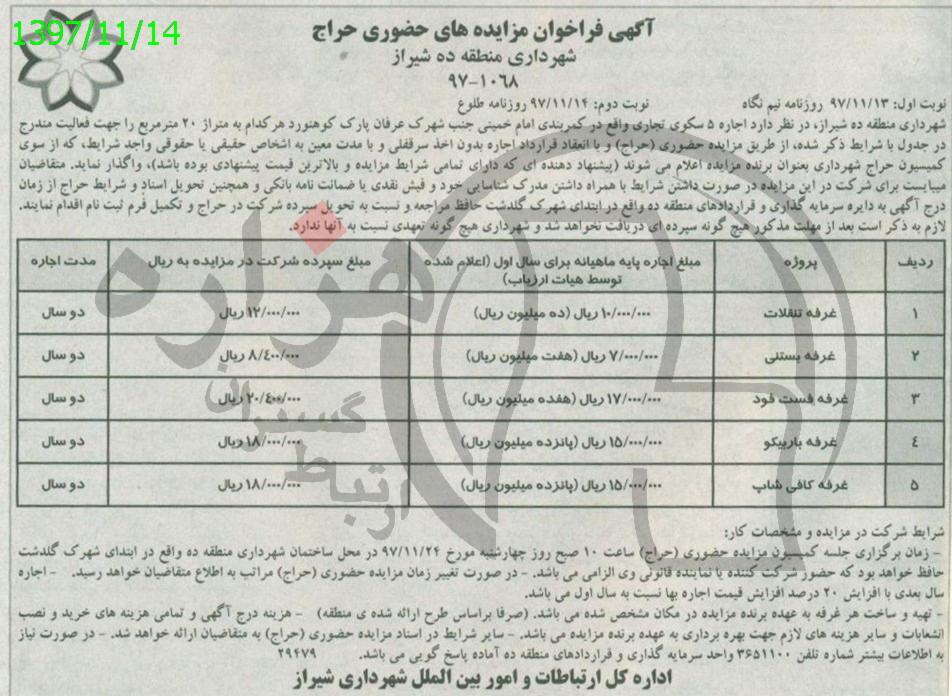 1397/11/14
آگهی فراخوان مزایده های حضوری حراج
شهرداری منطقه ده شیراز
۹۷-۱۰۶۸
نوبت اول: ۹۷/۱۱/۱۳ روزنامه نیم نگاه نوبت دوم: ۹۷/۱۱/۱۴ روزنامه طلوع
شهرداری منطقه ده شیراز، در نظر دارد اجاره ۵ سکوی تجاری واقع در کمربندی امام خمینی جنب شهرک عرفان پارک کوهنورد هرکدام به متراژ ۲۰ مترمربع را جهت فعالیت مندرج
در جدول با شرایط ذکر شده، از طریق مزایده حضوری (حراج) و با انعقاد قرارداد اجاره بدون اخذ سرقفلی و با مدت معین به اشخاص حقیقی یا حقوقی واجد شرایط، که از سوی
کمیسیون حراج شهرداری بعنوان برنده مزایده اعلام می شوند (پیشنهاد دهنده ای که دارای تمامی شرایط مزایده و بالاترین قیمت پیشنهادی بوده باشد)، واگذار نماید. متقاضیان
میبایست برای شرکت در این مزایده در صورت داشتن شرایط با همراه داشتن مدرک شناسایی خود و فیش نقدی یا ضمانت نامه بانکی و همچنین تحویل اسناد و شرایط حراج از زمان
درج آگهی به دایره سرمایه گذاری و قراردادهای منطقه ده واقع در ابتدای شهرک گلدشت حافظ مراجعه و نسبت به تحویل سپرده شرکت در حراج و تکمیل فرم ثبت نام اقدام نمایند.
لازم به ذکر است بعد از مهلت مذکور هیچ گونه سپرده ای دریافت نخواهد شد و شهرداری هیچ گونه تعهدی نسبت به آنها ندارد.
ردیف پروژه مبلغ اجاره پایه ماهیانه برای سال اول (اعلام شده توسط هیات ارزیاب) مبلغ سپرده شرکت در مزایده به ریال مدت اجاره
۱ غرفه تنقلات ۱۰/۰۰۰/۰۰۰ ریال (ده میلیون ریال) ۱۲/۰۰۰/۰۰۰ ریال دو سال
۲ غرفه بستنی ۷/۰۰۰/۰۰۰ ریال (هفت میلیون ریال) ۸/۴۰۰/۰۰۰ ریال دو سال
۳ غرفه فست فود ۱۷/۰۰۰/۰۰۰ ریال (هفده میلیون ریال) ۲۰/۴۰۰/۰۰۰ ریال دو سال
۴ غرفه باربیکو ۱۵/۰۰۰/۰۰۰ ریال (پانزده میلیون ریال) ۱۸/۰۰۰/۰۰۰ ریال دو سال
۵ غرفه کافی شاپ ۱۵/۰۰۰/۰۰۰ ریال (پانزده میلیون ریال) ۱۸/۰۰۰/۰۰۰ ریال دو سال
هزاره
گستران
ارتباط
شرایط شرکت در مزایده و مشخصات کار:
- زمان برگزاری جلسه کمیسیون مزایده حضوری (حراج) ساعت ۱۰ صبح روز چهارشنبه مورخ ۹۷/۱۱/۲۴ در محل ساختمان شهرداری منطقه ده واقع در ابتدای شهرک گلدشت
حافظ خواهد بود که حضور شرکت کننده یا نماینده قانونی وی الزامی می باشد. - در صورت تغییر زمان مزایده حضوری (حراج) مراتب به اطلاع متقاضیان خواهد رسید. - اجاره
سال بعدی با افزایش ۲۰ درصد افزایش قیمت اجاره بها نسبت به سال اول می باشد.
- تهیه و ساخت هر غرفه به عهده برنده مزایده در مکان مشخص شده می باشد. (صرفا براساس طرح ارائه شده ی منطقه) - هزینه درج آگهی و تمامی هزینه های خرید و نصب
انشعابات و سایر هزینه های لازم جهت بهره برداری به عهده برنده مزایده می باشد. - سایر شرایط در اسناد مزایده حضوری (حراج) به متقاضیان ارائه خواهد شد. - در صورت نیاز
به اطلاعات بیشتر شماره تلفن ۳۶۵۱۱۰۰ واحد سرمایه گذاری و قراردادهای منطقه ده آماده پاسخ گویی می باشد. ۲۹۴۷۹
اداره کل ارتباطات و امور بین الملل شهرداری شیراز